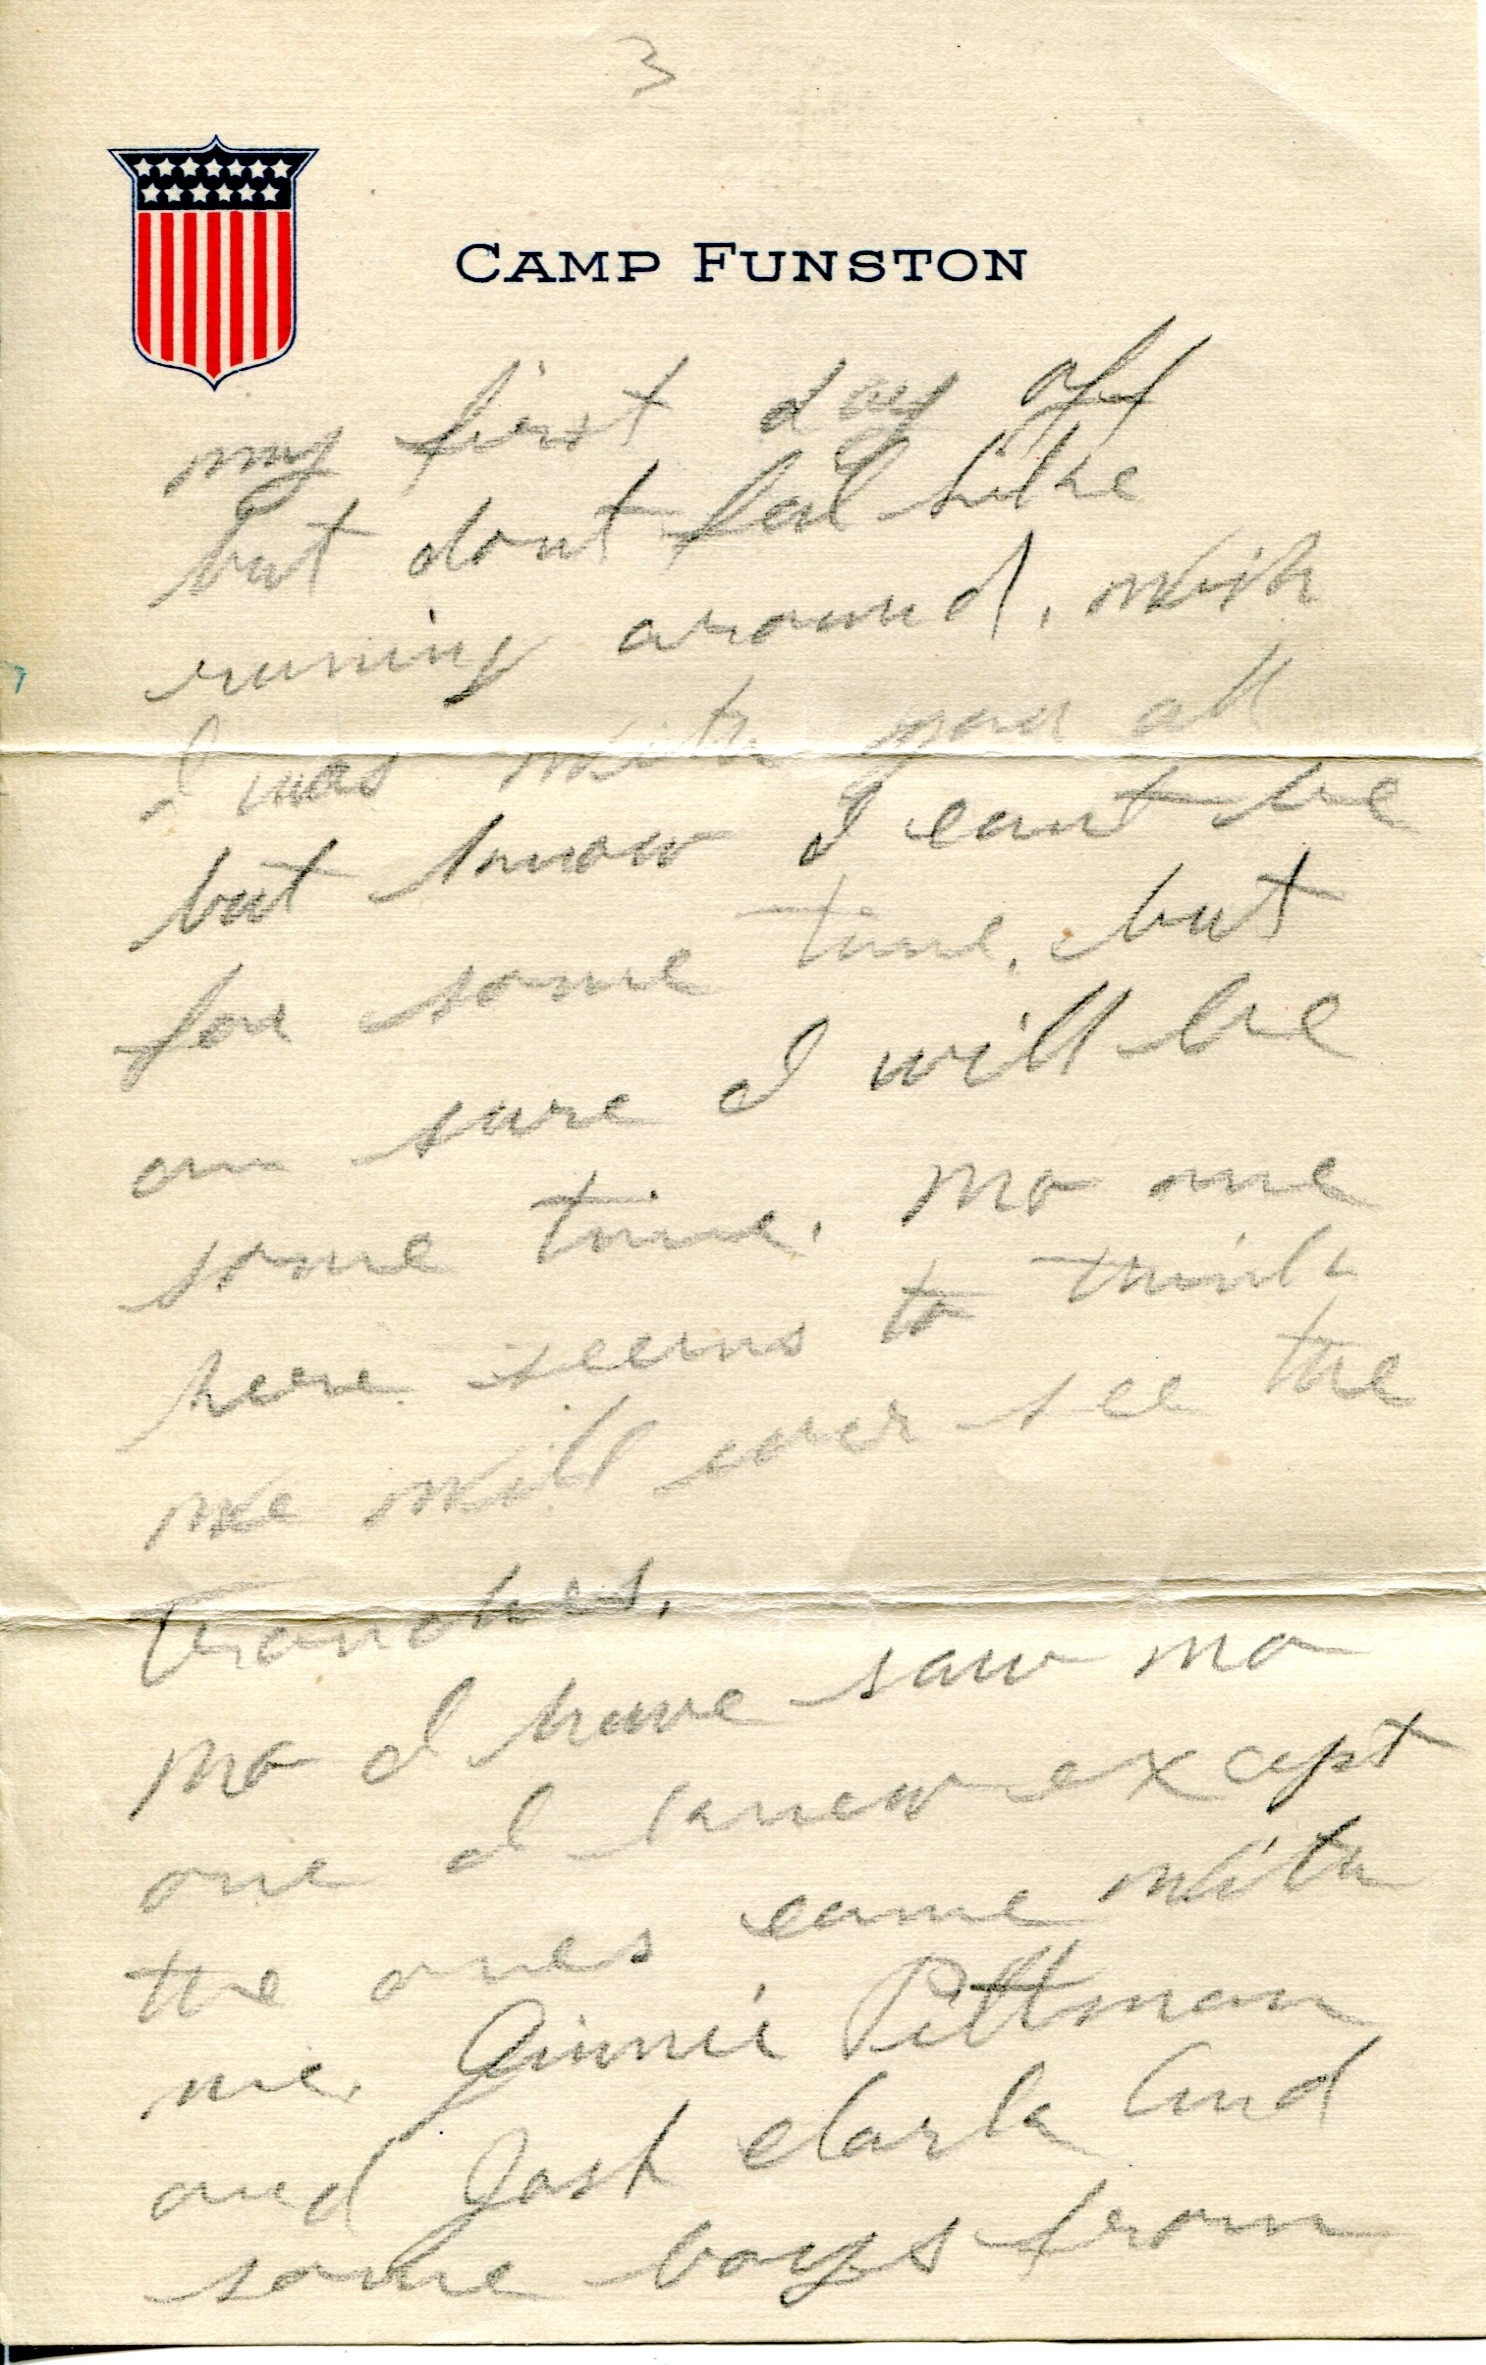 3
CAMP FUNSTON
my first day off
but dont feel like
runing around. wish
I was with you all
but know I cant be
for some time. but
am sure I will be
some time. no one
here seems to think
we will ever see the
Tranches.
no I have saw no
one I knew except
the ones came with
me. Jimmie Pittman
and Josh Clark and
some boys from